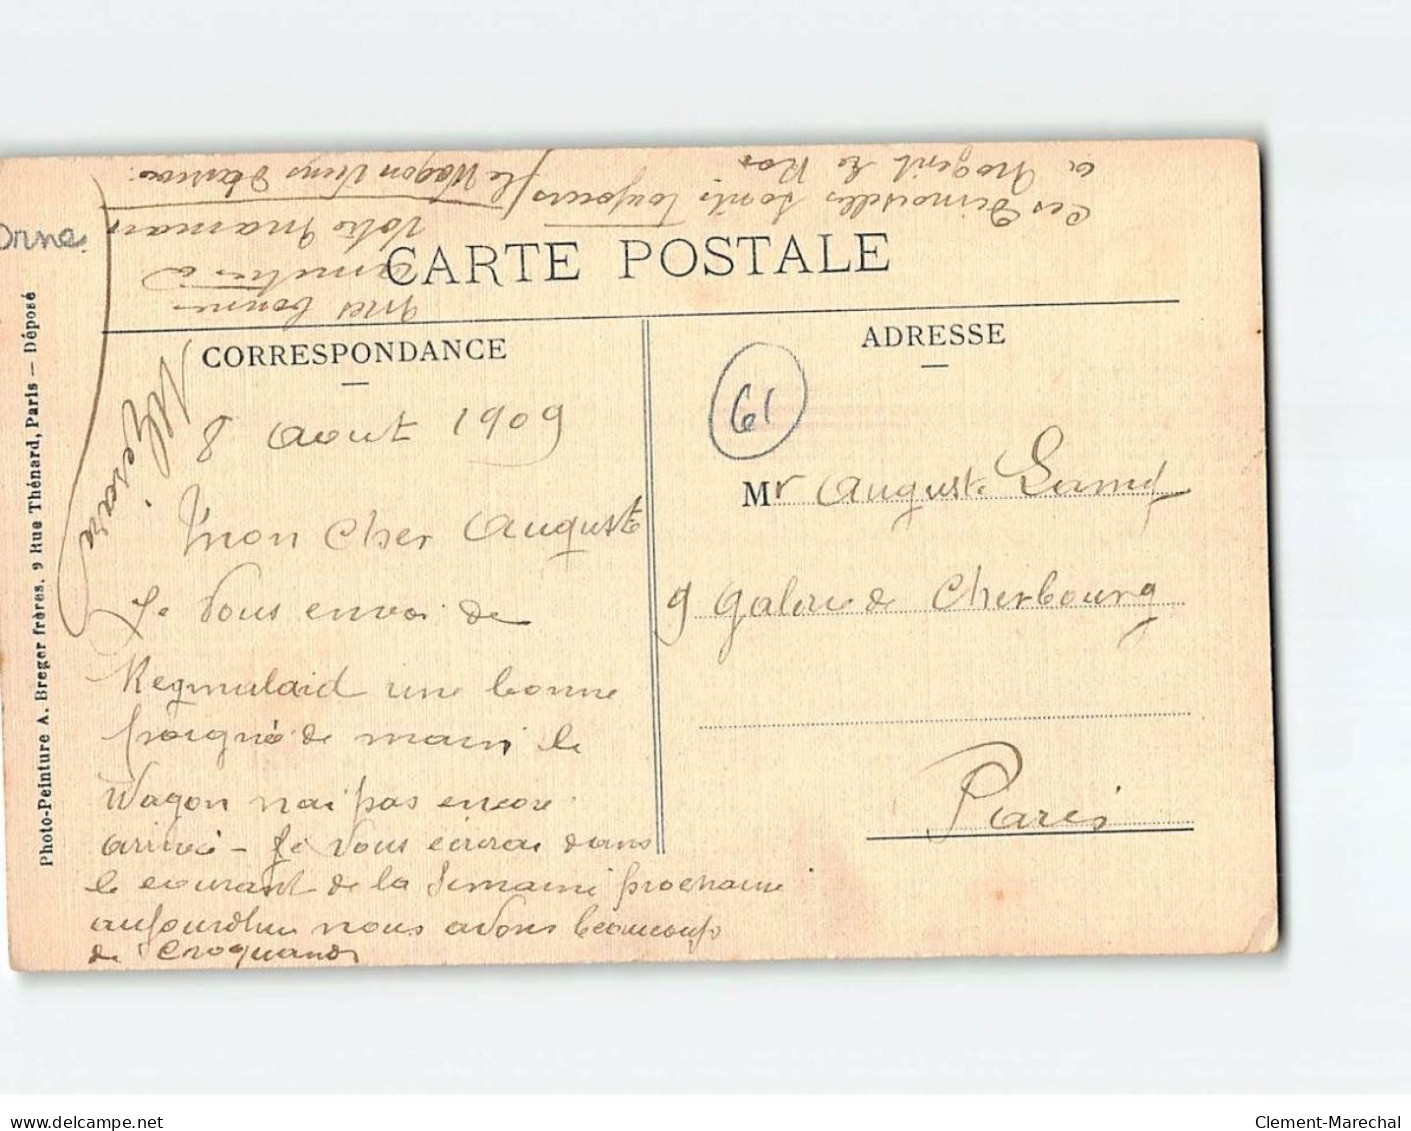 CARTE POSTALE
CORRESPONDANCE
ADRESSE
8 Aout 1909
Mon Cher Auguste
Je vous envoi de
Regmulaid une bonne
poigné de main le
Wagon n'ai pas encore
arrivé - Je vous écirai dans
le courant de la Semaine prochaine
aujourdhui nous avons beaucoup
de Croquands
Les Dimoiselles sonts toujours
a Nogent le Ro
le Wagon Viens
Mes bonne
amitiés à
Votre Maman
61
Mr Auguste Lamy
9 Galerie de Cherbourg
Paris
Orne
Photo-Peinture A. Breger frères. 9 Rue Thénard, Paris — Déposé
www.delcampe.net
Clement-Marechal